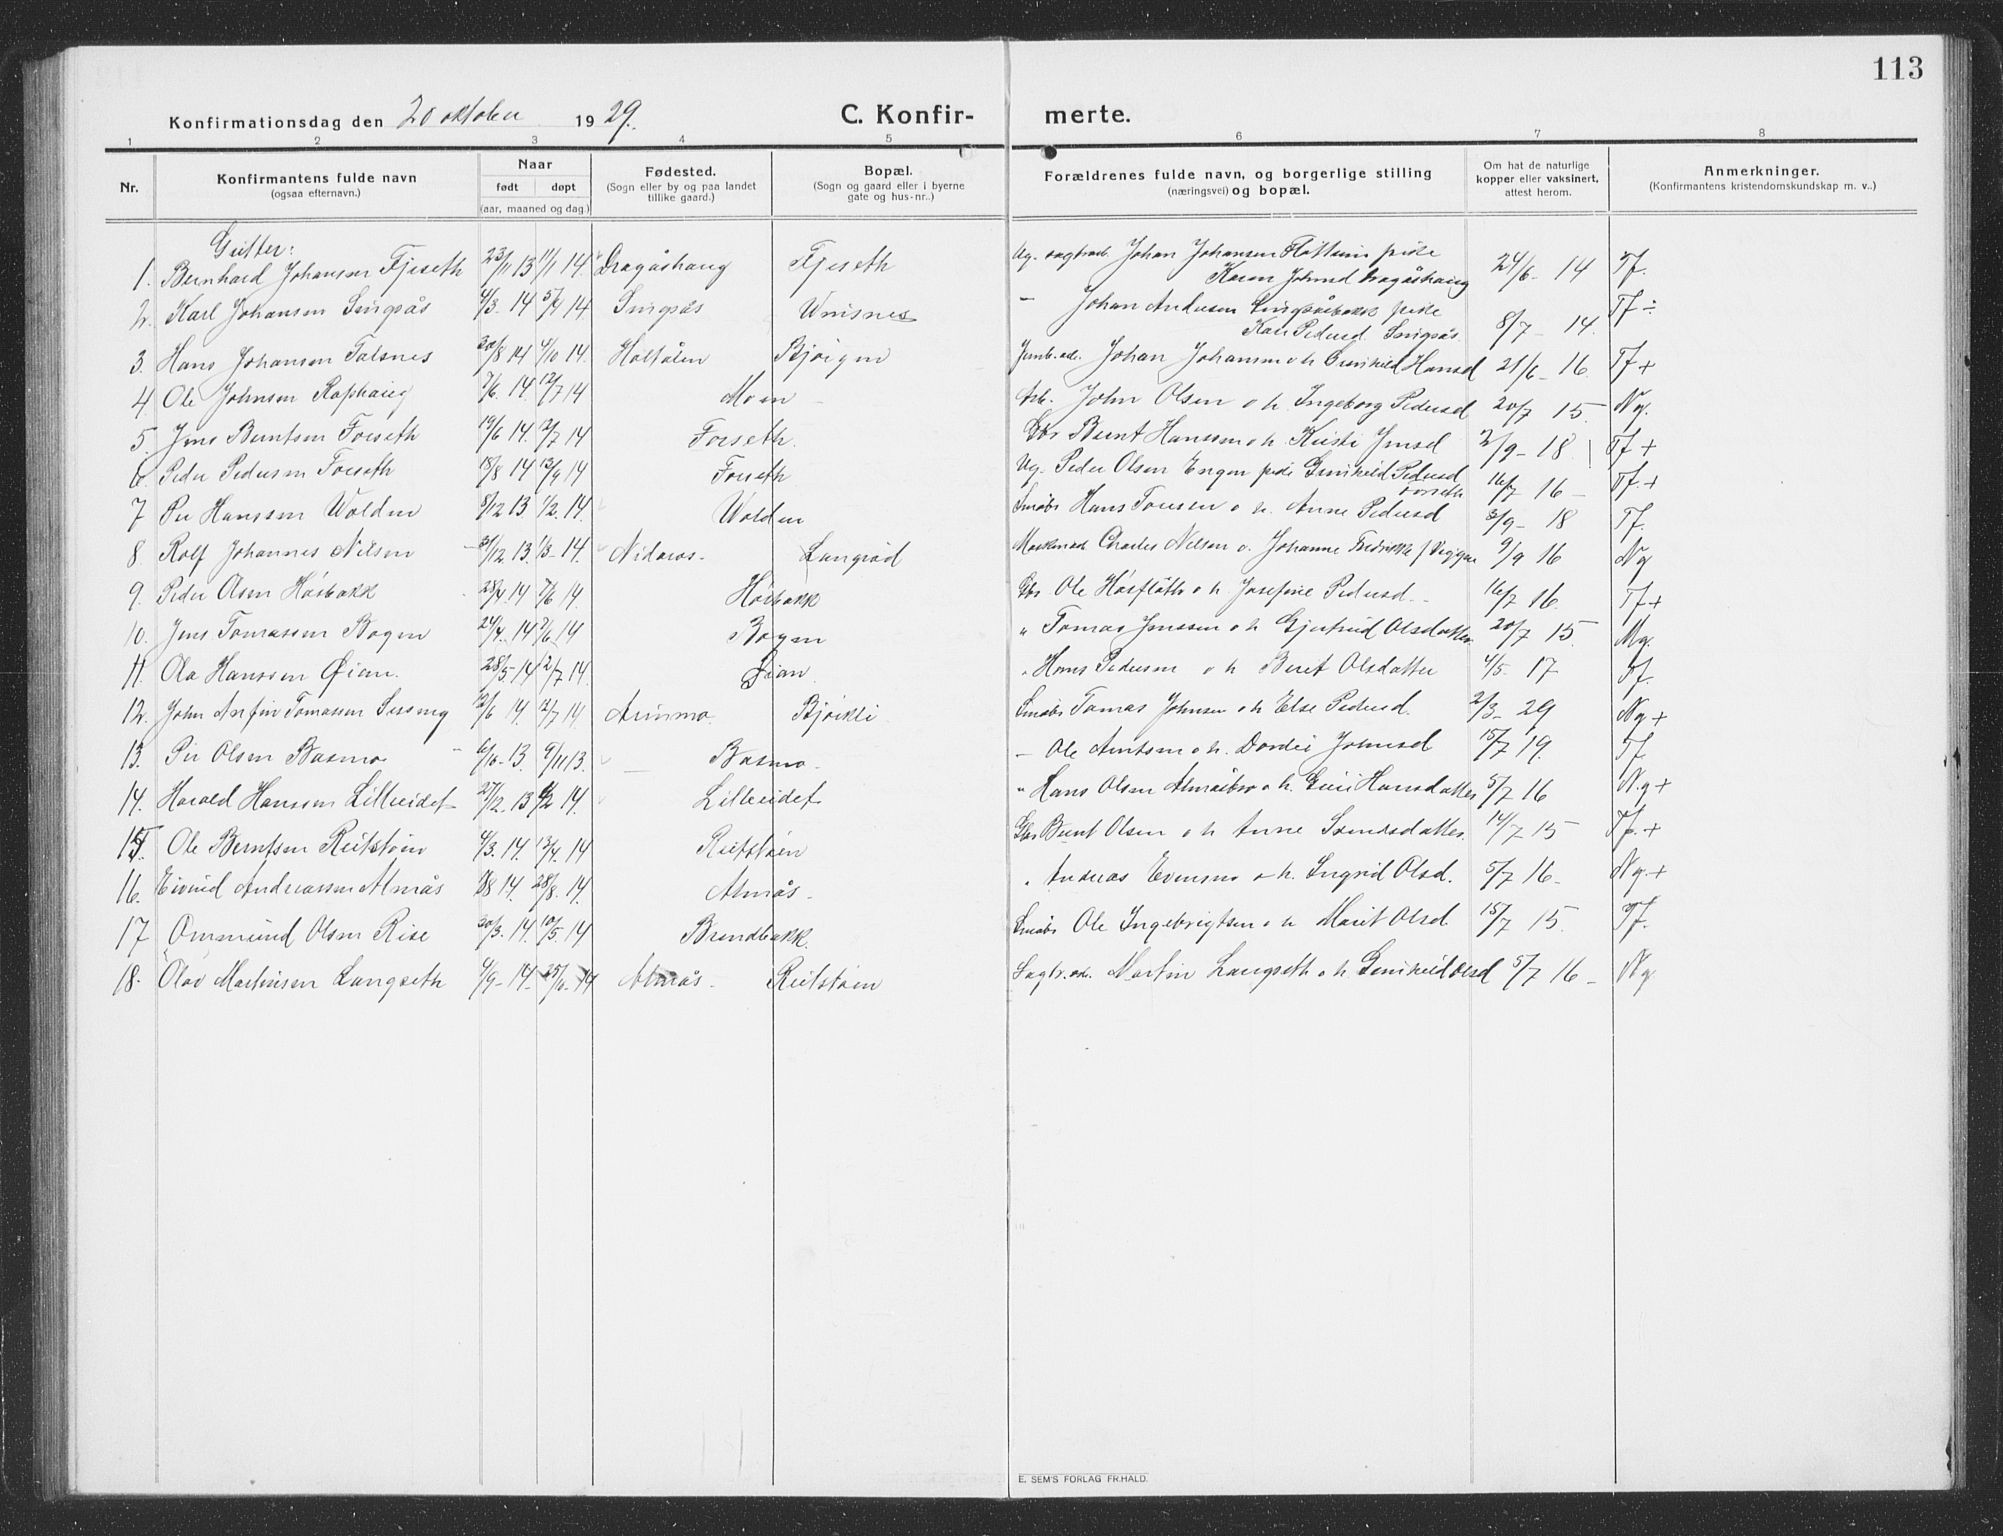 113
Konfirmationsdag den 20 oktober 1929. C. Konfir- merte.
1 2 3 4 5 6 7 8
Nr. Konfirmantens fulde navn (ogsaa efternavn.) Naar født døpt (aar, maaned og dag.) Fødested. (Sogn eller by og paa landet tillike gaard.) Bopæl. (Sogn og gaard eller i byerne gate og hus-nr..) Forældrenes fulde navn, og borgerlige stilling (næringsvei) og bopæl. Om hat de naturlige kopper eller vaksinert, attest herom. Anmerkninger. (Konfirmantens kristendomskundskap m. v..)
Gutter:
1. Bernhard Johansen Fjeseth 23/11 13 11/1 14. Dragåshaug Fjeseth Ug. sagtarb. Johan Johansen Flottum pike 24/6 - 14 Tf.
Karen Johnsd Dragåshaug
2. Karl Johansen Singsås 4/3. 14 5/4 14 Singsås Winsnes — Johan Andersen Singsåsbakk pike 8/7 - 14. Tf ÷
Kari Pedersd Singsås.
3. Hans Johansen Talsnes 20/8 14 4/10 14. Holtålen Bjørgen Jernb.arb. Johan Johansen o h Gunhild Hansd 21/6 - 16. Tf +
4. Ole Johnsen Raphaug 7/6. 14 12/7 14 Moen - Arb. John Olsen o h. Ingeborg Pedersd 20/7 15. Ng.
5. Jens Berntsen Forseth 19/6 14. 2/7 14 Forseth. Gbr Bernt Hanssen o h. Kirsti Jensd 2/9 - 18 Tf +
6. Peder Pedersen Forseth 18/8 14 13/9 14 Forseth Ug. Peder Olsen Engen pike Gunhild Pedersd 16/7 16 - Tf. +
Forseth
7 Per Hanssen Volden 8/12 13 1/2. 14. Volden Småbr Hans Toresen o h. Anne Pedersd 3/9 - 18 Tf.
8. Rolf Johannes Nilsen 31/12. 13. 1/3 - 14. Nidaros - Langrød Charles Nilsen o. Johanne Fredrikke f Viggen 9/9 16 Ng
9. Peder Olsen Håsbakk 28/4. 14 7/6 14. Håsbakk Gbr Ole Håsflåth o h Josefine Pedersd. - 16/7 16. Tf +
10. Jens Tomassen Bogen 24/4. 14 7/6 14 Bogen " Tomas Jenssen o h Gjertrud Olsdatter 20/7 15. Mg.
11. Ola Hanssen Øian. 28/5 - 14 2/7 14. Øian " Hans Pedersen o h Beret Olsdatter 4/5. 17 Tf.
12. John Arfin Tomassen 12/6 14. 2/7 14 Almås. Bjørkli Småbr Tomas Johnsen o h Else Pedersd. 2/3 - 29 Ng +
13. Per Olsen Basmo 6/10 - 13. 9/11 13. — Basmo - — Ole Arntsen o h. Dordei Johnsd 15/7 19. Tf.
14. Harald Hanssen Lilleeidet 27/12. 13 14. Lilleeidet " Hans Olsen Almåsbro o h. Guri Hansdatter 5/7 16 Ng +
15 Ole Berntsen Reitstøen 4/3. 14. 13/4. 14 Reitstøen Gbr Bernt Olsen o h Anne Ivarsdatter. 14/7 15 Tf. +
16. Eivind Andreassen Almås 7/8 14. 28/8. 14. Almås - " Andreas Evensen o h. Ingrid Olsd. 5/7 16 - Ng. +
17 Ommund Olsen Rise 20/3. 14. 10/5. 14 Brendbakk. Småbr Ole Ingebrigtsen o h Marit Olsd 15/7 15. Tf.
18. Olav Martinsen Langseth 4/9 - 14. 25/10 - 14 Almås - Reitstøen Sagbr.arb. Martin Langseth o h Gunhild Olsd 5/7 16 - Ng.
E. SEM'S FORLAG FR.HALD.